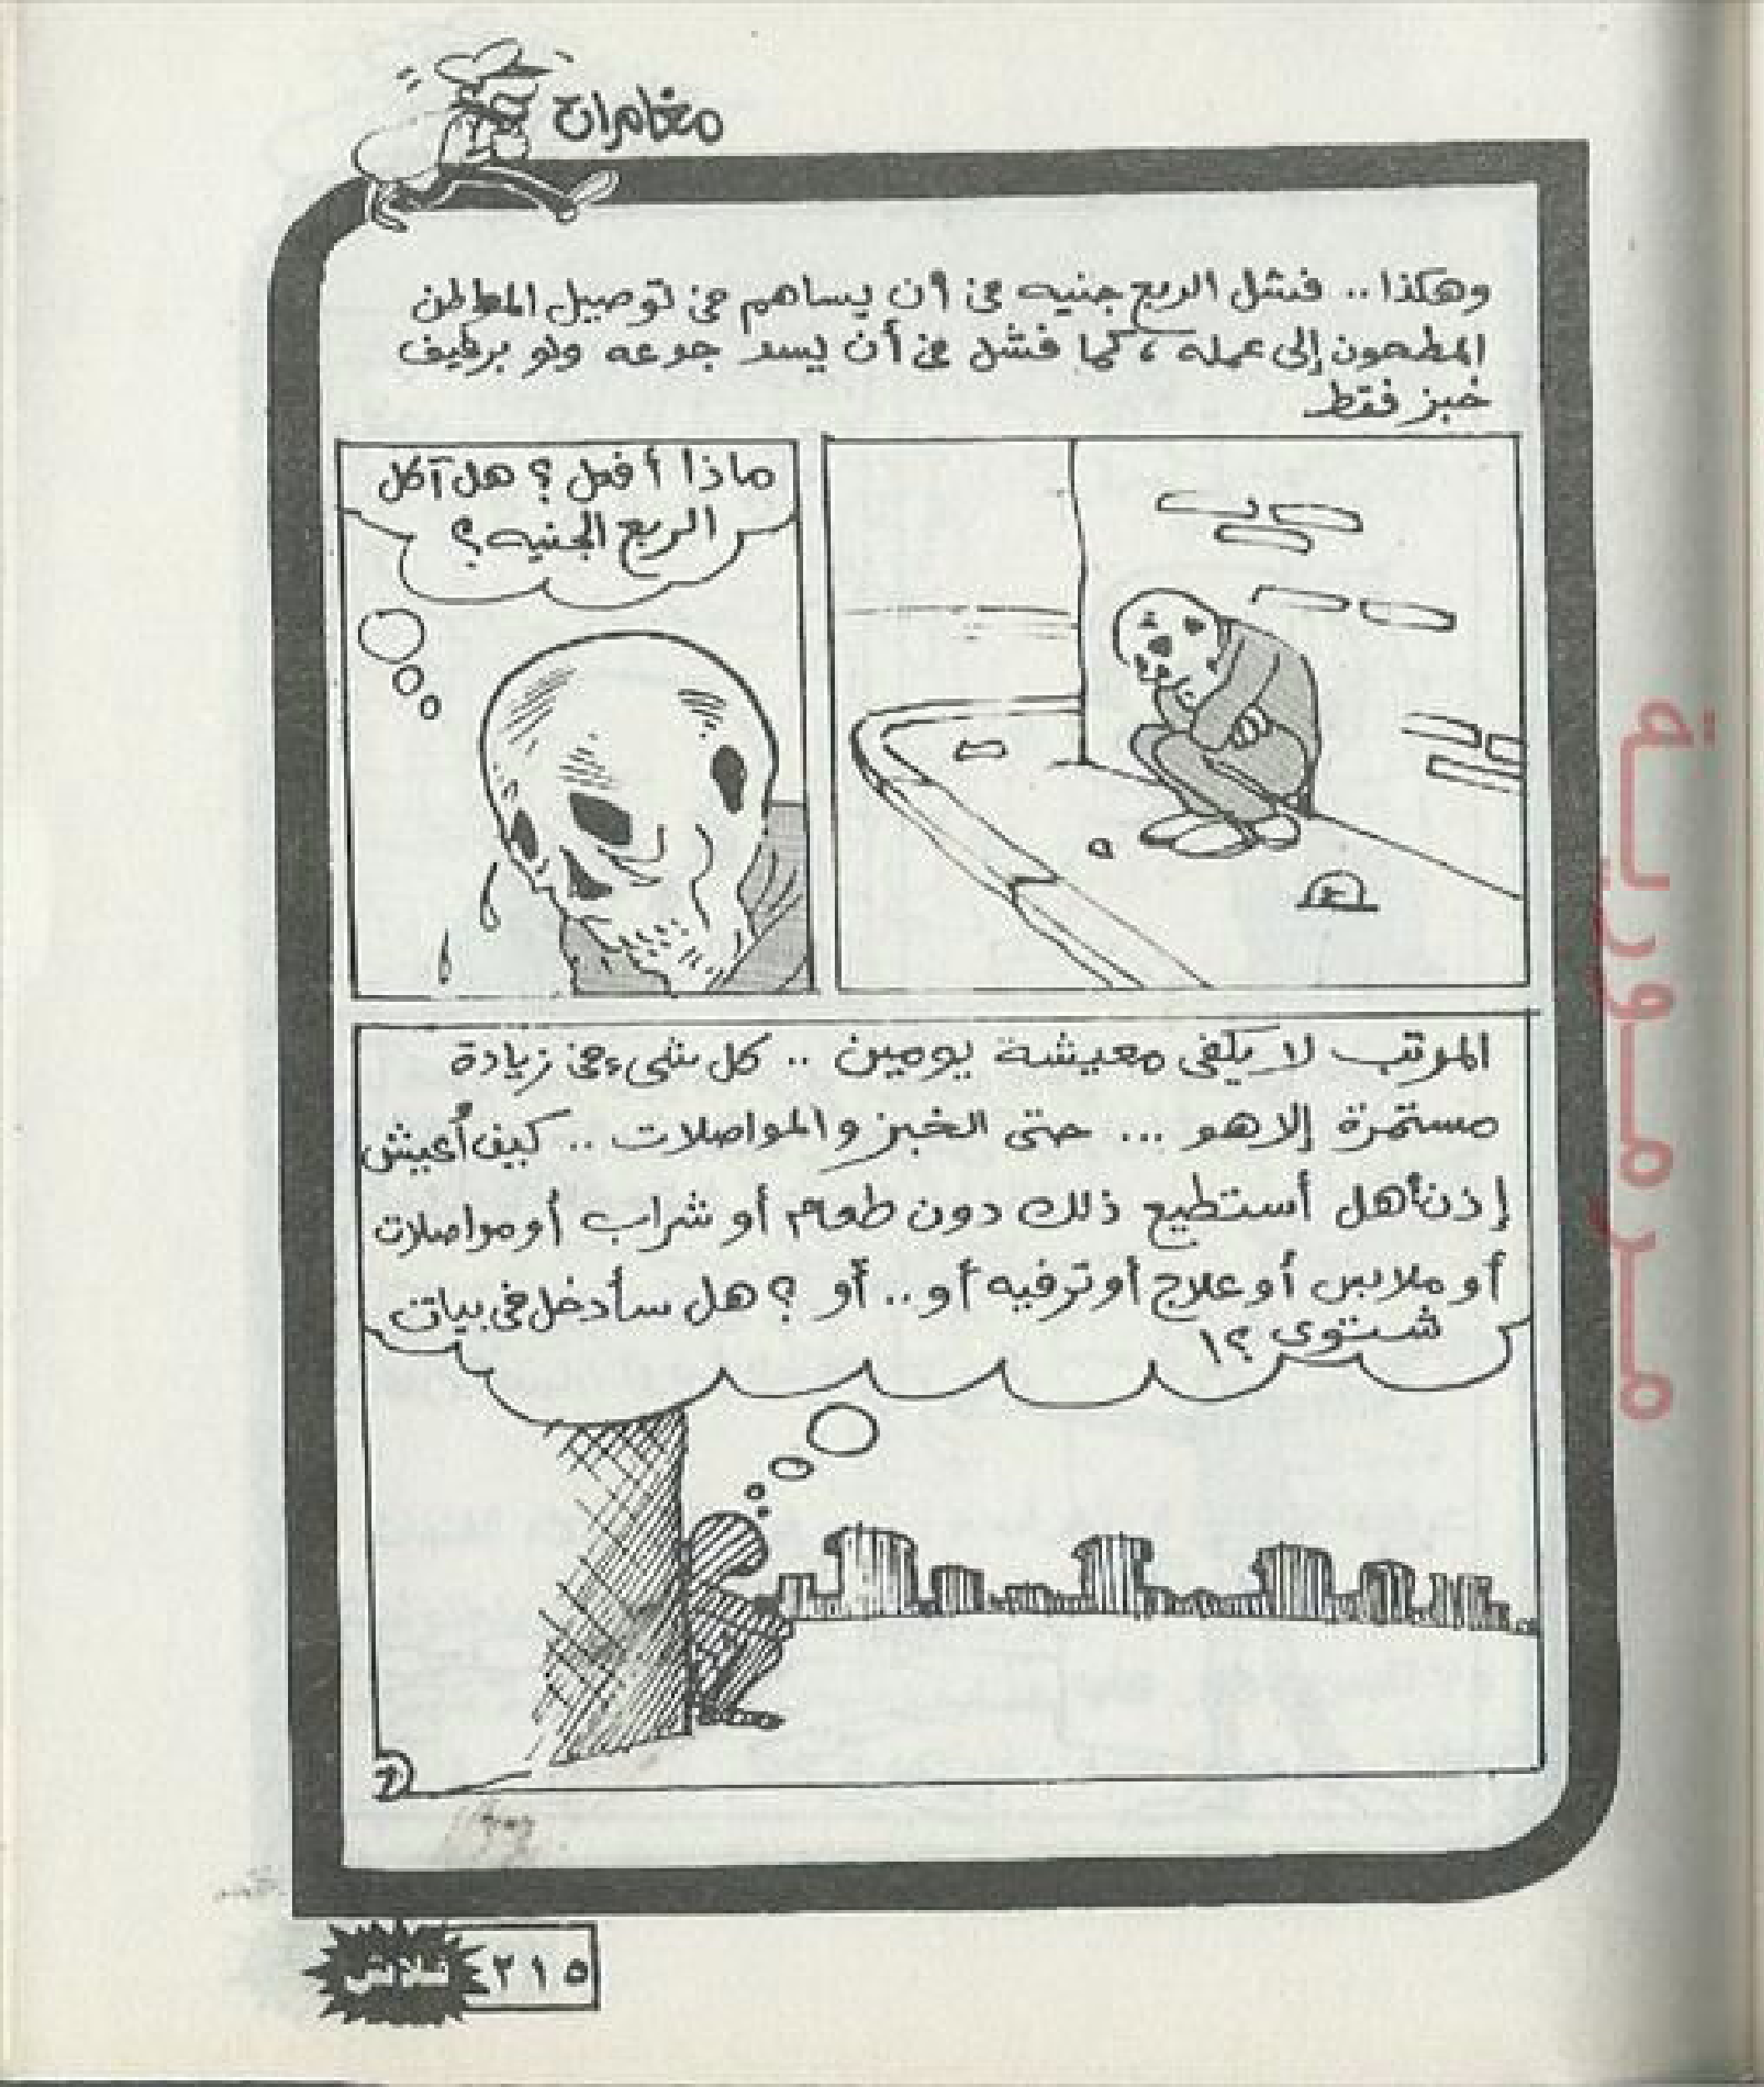 مغامرات
وهكذا.. فشل الربع جنيه في أن يساهم في توصيل المواطن
المطحون إلى عمله، كما فشل في أن يسد جوعه ولو برغيف
خبز فقط
ماذا أفعل؟ هل آكل
الربع الجنيه؟
المرتب لا يكفى معيشة يومين .. كل شىء في زيادة
مستمرة إلا هو ... حتى الخبز والمواصلات .. كيف أعيش
إذن؟ هل أستطيع ذلك دون طعام أو شراب أو مواصلات
أو ملابس أو علاج أو ترفيه أو.. أو ؟ هل سأدخل في بيات
شتوى ؟!
٢١٥
فلاش
مرمورية